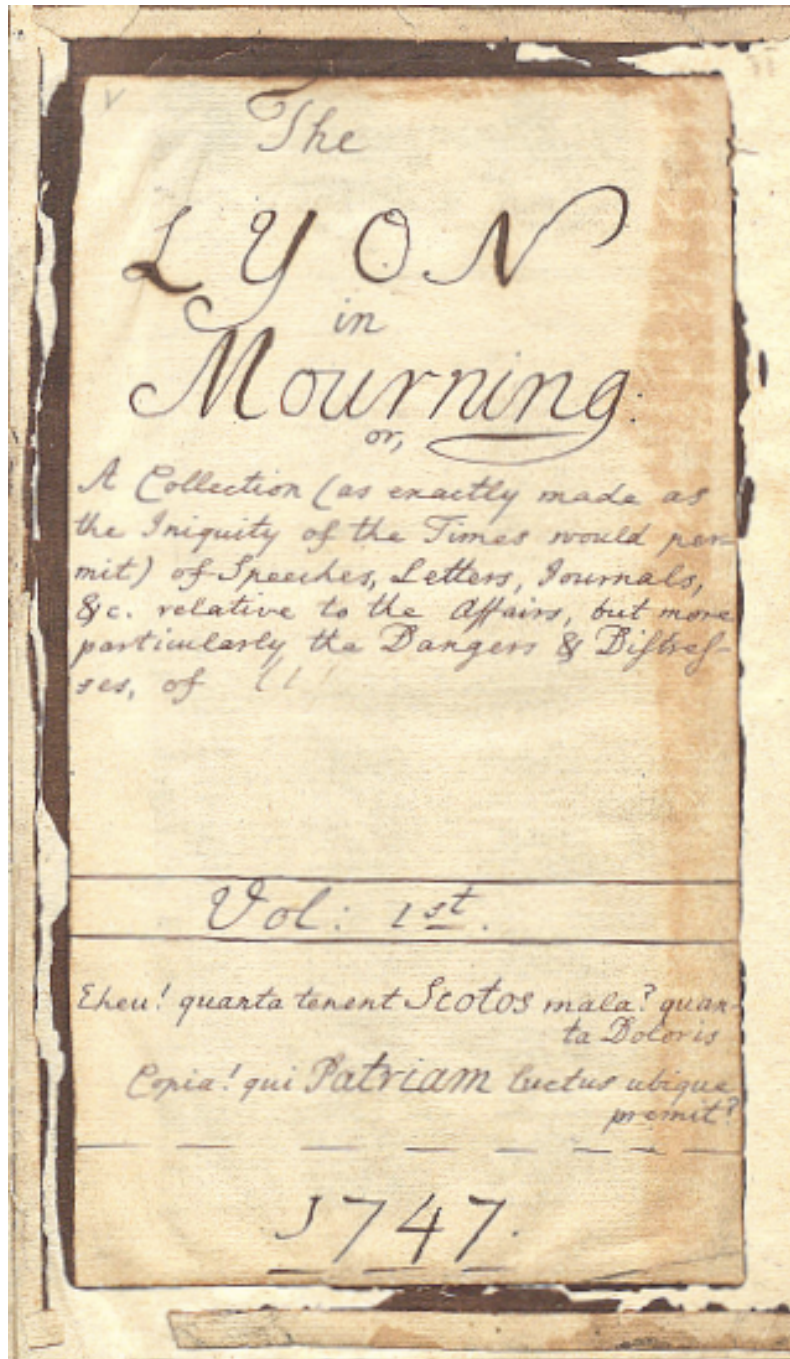 The
LYON
in
Mourning:
or,
A Collection (as exactly made as
the Iniquity of the Times would per=
mit) of Speeches, Letters, Journals,
&c. relative to the Affairs, but more
particularly the Dangers & Distres-
ses, of
Vol: 1st.
Eheu! quanta tenent Scotos mala? quan-
ta Doloris
Copia! qui Patriam luctus ubique
premit?
1747.